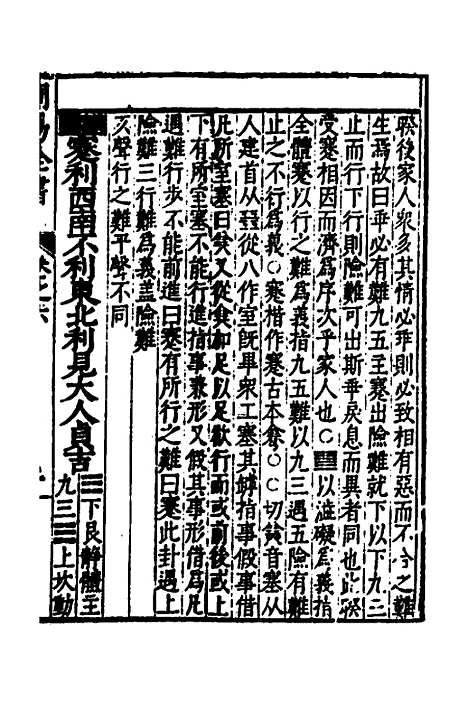 睽後家人衆多其情必乖則必致相有惡而不合之難
生焉故曰乖必有難九五至蹇出險難就下以下九三
止而行下行則險難可出斯乖戾息而異者同也此睽
受蹇相因而濟爲序次乎家人也○☵☶以滋礙爲義指
全體蹇以行之難爲義指九五難以九三遇五險有難
止之不行爲義○蹇楷作蹇古本 ○○切 音塞从
人建首从 从八作室旣畢衆工塞其 指事假事借
凡所室塞曰 又从 加足以足歇行而或前後或上
下有所室塞不能行進指事兼形又假其事形借爲凡
遇難行步不能前進曰蹇有所行之難曰蹇此卦遇上
險難三行難爲義盖險難
去聲行之難平聲不同
蹇利西南不利東北利見大人貞吉
☶下艮靜體主
九三☵上坎動
周易全書
卷之六